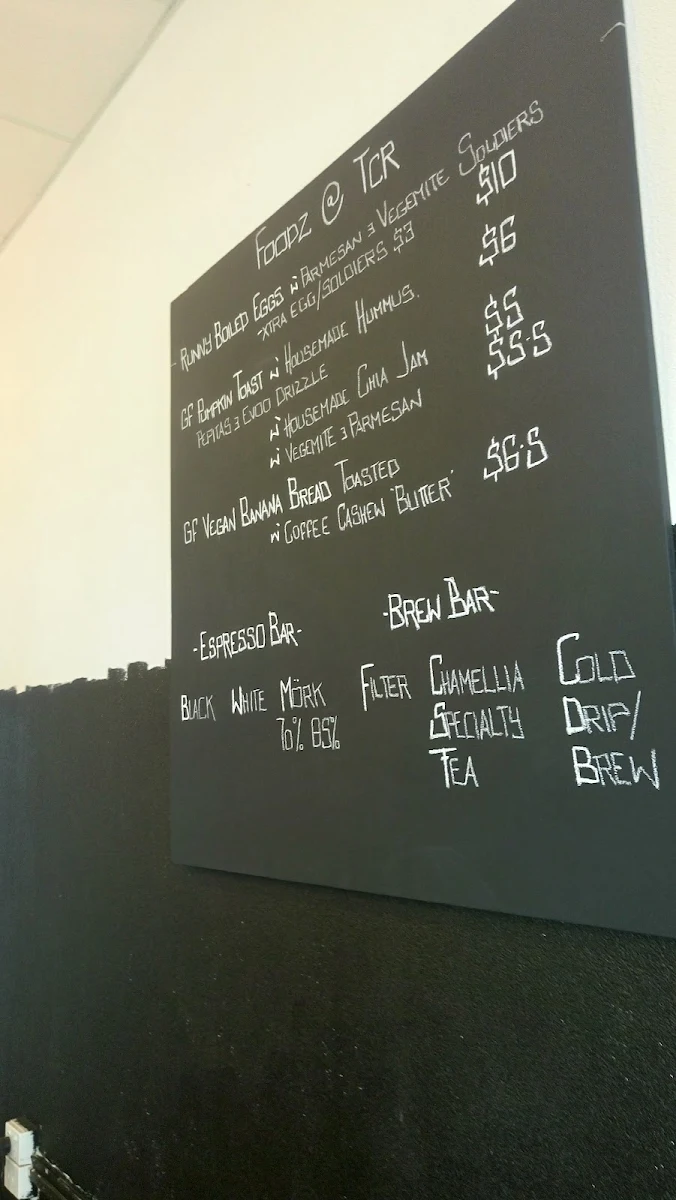 FOODZ @ TCR
RUNNY BOILED EGGS W PARMESAN & VEGEMITE SOLDIERS $10
XTRA EGG/SOLDIERS $3
GF PUMPKIN TOAST W HOUSEMADE HUMMUS. $6
PEPITAS & EVOO DRIZZLE
W HOUSEMADE CHIA JAM $5
W VEGEMITE & PARMESAN $5.5
GF VEGAN BANANA BREAD TOASTED
W COFFEE CASHEW 'BUTTER' $6.5
-ESPRESSO BAR-
BLACK WHITE MÖRK
70% 85%
-BREW BAR-
FILTER CHAMELLIA COLD
SPECIALTY DRIP/
TEA BREW